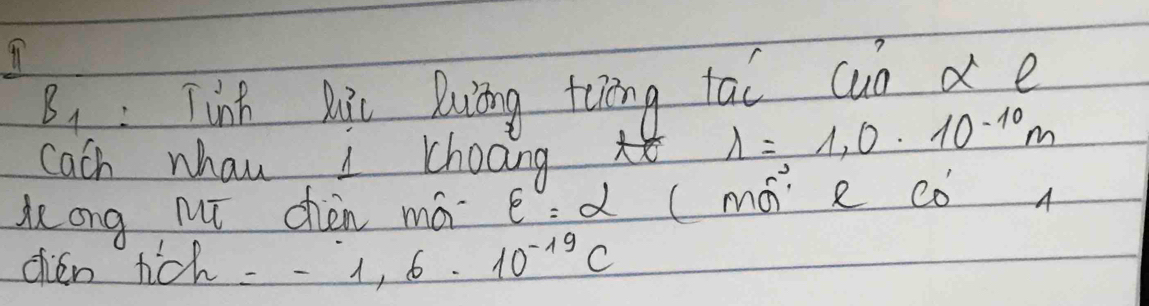 II
B1 : Tính lực lượng tương tác của 2 e
cách nhau 1 khoảng λ = 1,0 . 10^-10 m
trong MT điện môi ε = 2 ( mỗi e có 1
điện tích = - 1,6 . 10^-19 C